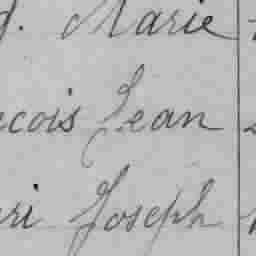 Marie
çois Jean
ri Joseph